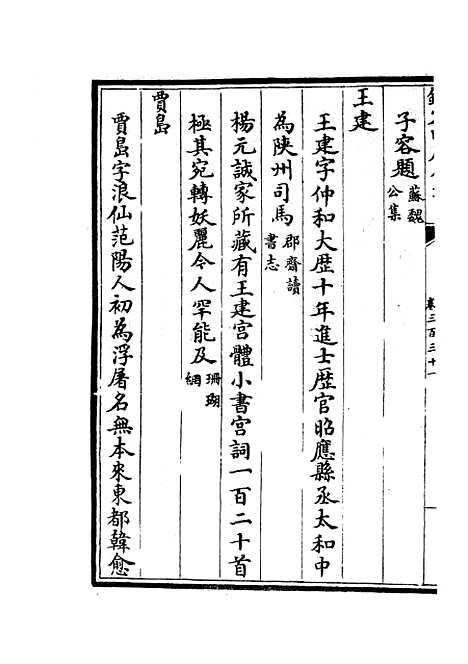 子容題蘇魏公集
王建
王建字仲和大歴十年進士歴官昭應縣丞太和中
為陜州司馬郡齋讀書志
楊元誠家所藏有王建宮體小書宮詞一百二十首
極其宛轉妖麗令人罕能及珊瑚網
賈島
賈島字浪仙范陽人初為浮屠名無本來東都韓愈
卷三百三十一